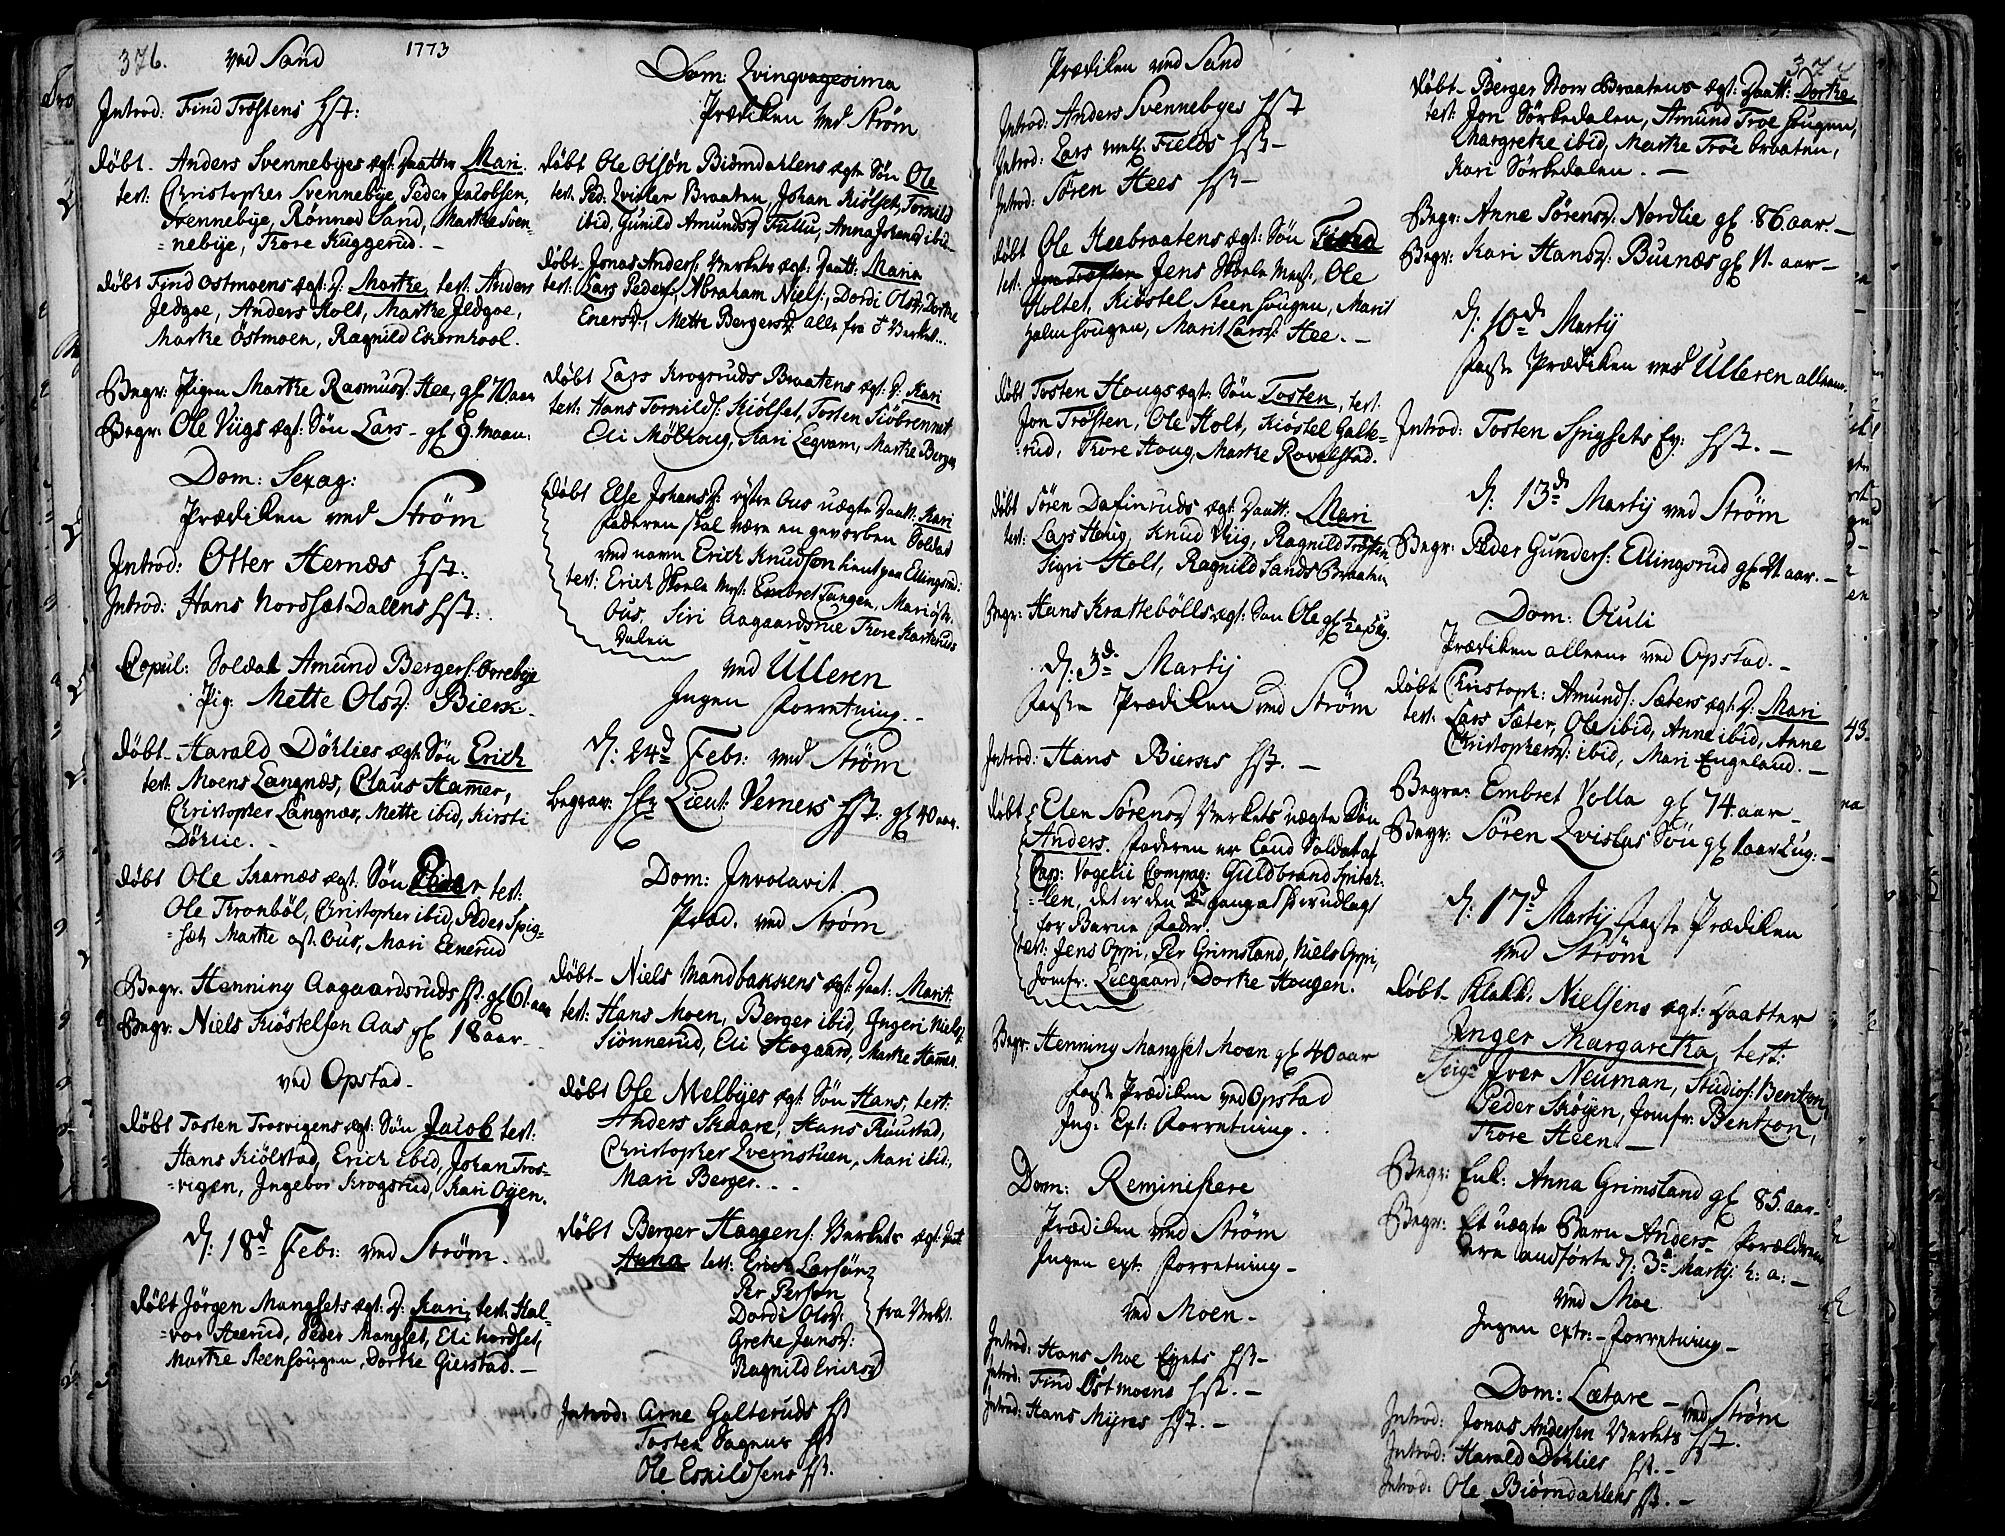 376. ved Sand 1773
Introd: Find Trøstens hst:
døbt. Anders Svennebyes ægt: Daatter Mari.
test: Christopher Svennebye, Peder Jacobsen,
Svennebye, Rønnod Sand, Marthe Sven-
=nebye, Thore Kuggerud. -
døbt Find Ostmoens ægt: D. Marthe, test: Anders
Jeldgoe, Anders Holt, Marthe Jeldgoe,
Marthe Östmoen, Ragnild Ekornhool.
Begr: Pigen Marthe Rasmusd: Hee, gl. 70 aar
Begr: Ole Viigs ægt: Søn Lars - gl. 9. Maan:
Dom: Sexag:
Prædiken ved Strøm
Introd: Otter Hernæs hst.
Introd: Hans Nordsæt Dalens hst:
Copul: Soldat Amund Bergers: Orrebye
Pig: Mette Olsd: Bierk.
døbt. Harald Döhlies ægt: Søn Erich
test: Moens Langnæs, Claus Hamer,
Christopher Langnæs, Mette ibid, Kirsti
Döhlie. -
døbt Ole Skarnæs ægt: Søn Peder test:
Ole Thronböl, Christopher ibid, Peder Spig-
=sæt, Marthe øst. Ous, Mari Eenerud
Begr. Henning Aagaardsruds hst. gl. 61. aar
Begr: Niels Kiöstelsen Aas gl. 18 aar
ved Opstad.
døbt Tosten Trosvigens ægt: Søn Jacob test:
Hans Kiölstad, Erich ibid, Johan Tros-
=vigen, Ingebor Krogsrud, Kari Oyen.
d: 18d Febr: ved Strøm.
døbt Jörgen Mangsets ægt: D: Kari, test: Hal-
=vor Aserud, Peder Mangset, Eli Nordset,
Marthe Steenhougen, Dorthe Gierstad. -
Dom: Qvinqvagesima
Prædiken ved Strøm
døbt Ole Olsøn Biörndahlens ægt. Søn Ole
test: Ped. Qvisler Braaten, Johan Kiölset, Tornild
ibid, Gunild Amundsd Fullu, Anna Johansd ibid
døbt. Jonas Anders: Verkets ægt: Daatt: Maria
test: Lars Peders, Abraham Niels:, Dordi Olsd, Dorthe
Enersd, Mette Bergersd: alle fra ♂ Verket..
døbt Lars Krogsruds Braatens ægt: D. Kari
test: Hans Tornilds: Kiölset, Tosten Siöbrennet
Eli Mölhoug, Kari Legvam, Marthe Berger
døbt Else Johansd: østre Ous uægte Daatt. Kari
Faderen skal være en gevorben Soldat
ved navn Erich Knudsøn hiemt paa Ellingsrud:
test: Erich Skoele Mest: Embret Tangen, Mari øst.
Ous. Siri Aagaardsrue Thore Kartruds
Dalen
ved Ulleren
Ingen Forretning.
d: 24d Febr: ved Strøm
begrav: Hr Lieut: Verners hst: gl. 40 aar.
Dom: Invocavit.
Præd. ved Strøm
døbt. Niels Mandbakkens ægt: Daat: Marit.
test: Hans Moen, Berger ibid, Ingeri Niels:
Siönnerud, Eli Aagaard, Marthe Hamer.
døbt Ole Melbyes ægt: Søn Hans, test:
Anders Skaare, Hans Ruustad,
Christopher Qvernstuen, Mari ibid:,
Mari Berger. - -
døbt Berger Haggens: Verkets ægt: Daat
Anna test: Erich Larsön
Per Persøn
Dordi Olsd:
Grethe Jansd: fra Verket.
Ragnild Ericksd
Introd: Arne Galteruds hst
Tosten Sagnus hst
Ole Eskildsens hst.
377
Prædiken ved Sand
Introd: Anders Svennebyes hst
Introd: Lars Fields hst -
Introd: Søren Hees hst -
døbt Ole Heebraatens ægt: Søn Find
test: Jon Trøsten Jens Skoele Mest:, Ole
Holtet, Kiöstel Steenhougen, Marit
Halmhougen, Marit Larsd: Hee. -
døbt Tosten Hougs ægt. Søn Tosten, test.
Jon Trøsten, Ole Holt, Kiöstel Galte-
=rud, Thore Houg, Marthe Rovelstad.
døbt Sören Dafinruds ægt: Daatt: Mari
test: Lars Houg, Knud Viig, Ragnild Trøsten
Sigri Holt, Ragnild Sands Braaten
Begr: Hans Krattebölls ægt: Søn Ole gl ½ a 5 ug.
d: 3d. Martij
Faste Prædiken ved Strøm
Introd: Hans Bierkes hst. -
døbt. Elen Sörensd Verkets uægte Søn
Anders. Faderen er Land Soldat af
Cap: Vogelii Compag: Guldbrand
-len, det er den 2d gang
for Barne Fader.
test: Jens Oppi, Per Grimsland, Niels Oppi,
Jomfr. Leegaard, Dorthe Haugen.
Begr: Henning Mangset Moen gl 40 aar
Faste Prædiken ved Opstad
Ing: Ext: Forretning. .
Dom: Reminiscere
Prædiken ved Strøm
Ingen ext: Forretning -
ved Moen -
Introd: Hans Moe Eyets hst -
Introd: Find Östmoens hst. -
Introd: Hans Myres hst. -
døbt. Berger Stom Braatens ægt: Daatt: Dorthe
test: Jon Sörkedalen, Amund Troe hougen,
Margrethe ibid, Marthe Troe braaten,
Kari Sörkedalen. -
Begr: Anne Sörensd: Nordlie gl 86 aar -
Begr: Kari Hansd: Buenæs gl 11. aar -
d: 10d Martij
Faste Prædiken ved Ulleren alleene.
Introd: Tosten Spigsets Ey: hst. -
d: 13d Martij ved Strøm
Begr: Peder Gunders: Ellingsrud gl 21 aar. -
Dom: Oculi
Prædiken alleene ved Opstad. -
døbt Christoph: Amunds: Sæters ægt: D: Mari
test: Lars Sæter, Ole ibid, Anne ibid, Anne
Christophersd: ibid, Mari Engeland. -
Begrav: Embret Volla gl 74. aar -
Begr: Sören Qvislas Søn gl 1 aar 2 ug: -
d: 17d Martij Faste Prædiken
ved Strøm
døbt. Nielsens ægt: Daatter
Inger Margaretha, test:
Sieg: Iver Neuman, Studios: Bentzon
Peder Skøyen, Jomfr: Bentzon,
Thore Heen -
Begr: Enk: Anna Grimsland gl 85. aar. -
Begr: Et uægte Barn Anders. Forældrene
ere andförte d: 3d Martij h: a: -
ved Moe
Ingen extr: - Forretning -
Dom: Lætare -
ved Strøm
Introd: Jonas Andersen Verkets hst.
Introd: Harald Döhlies hst. -
Introd: Ole Biörndahlens hst. -